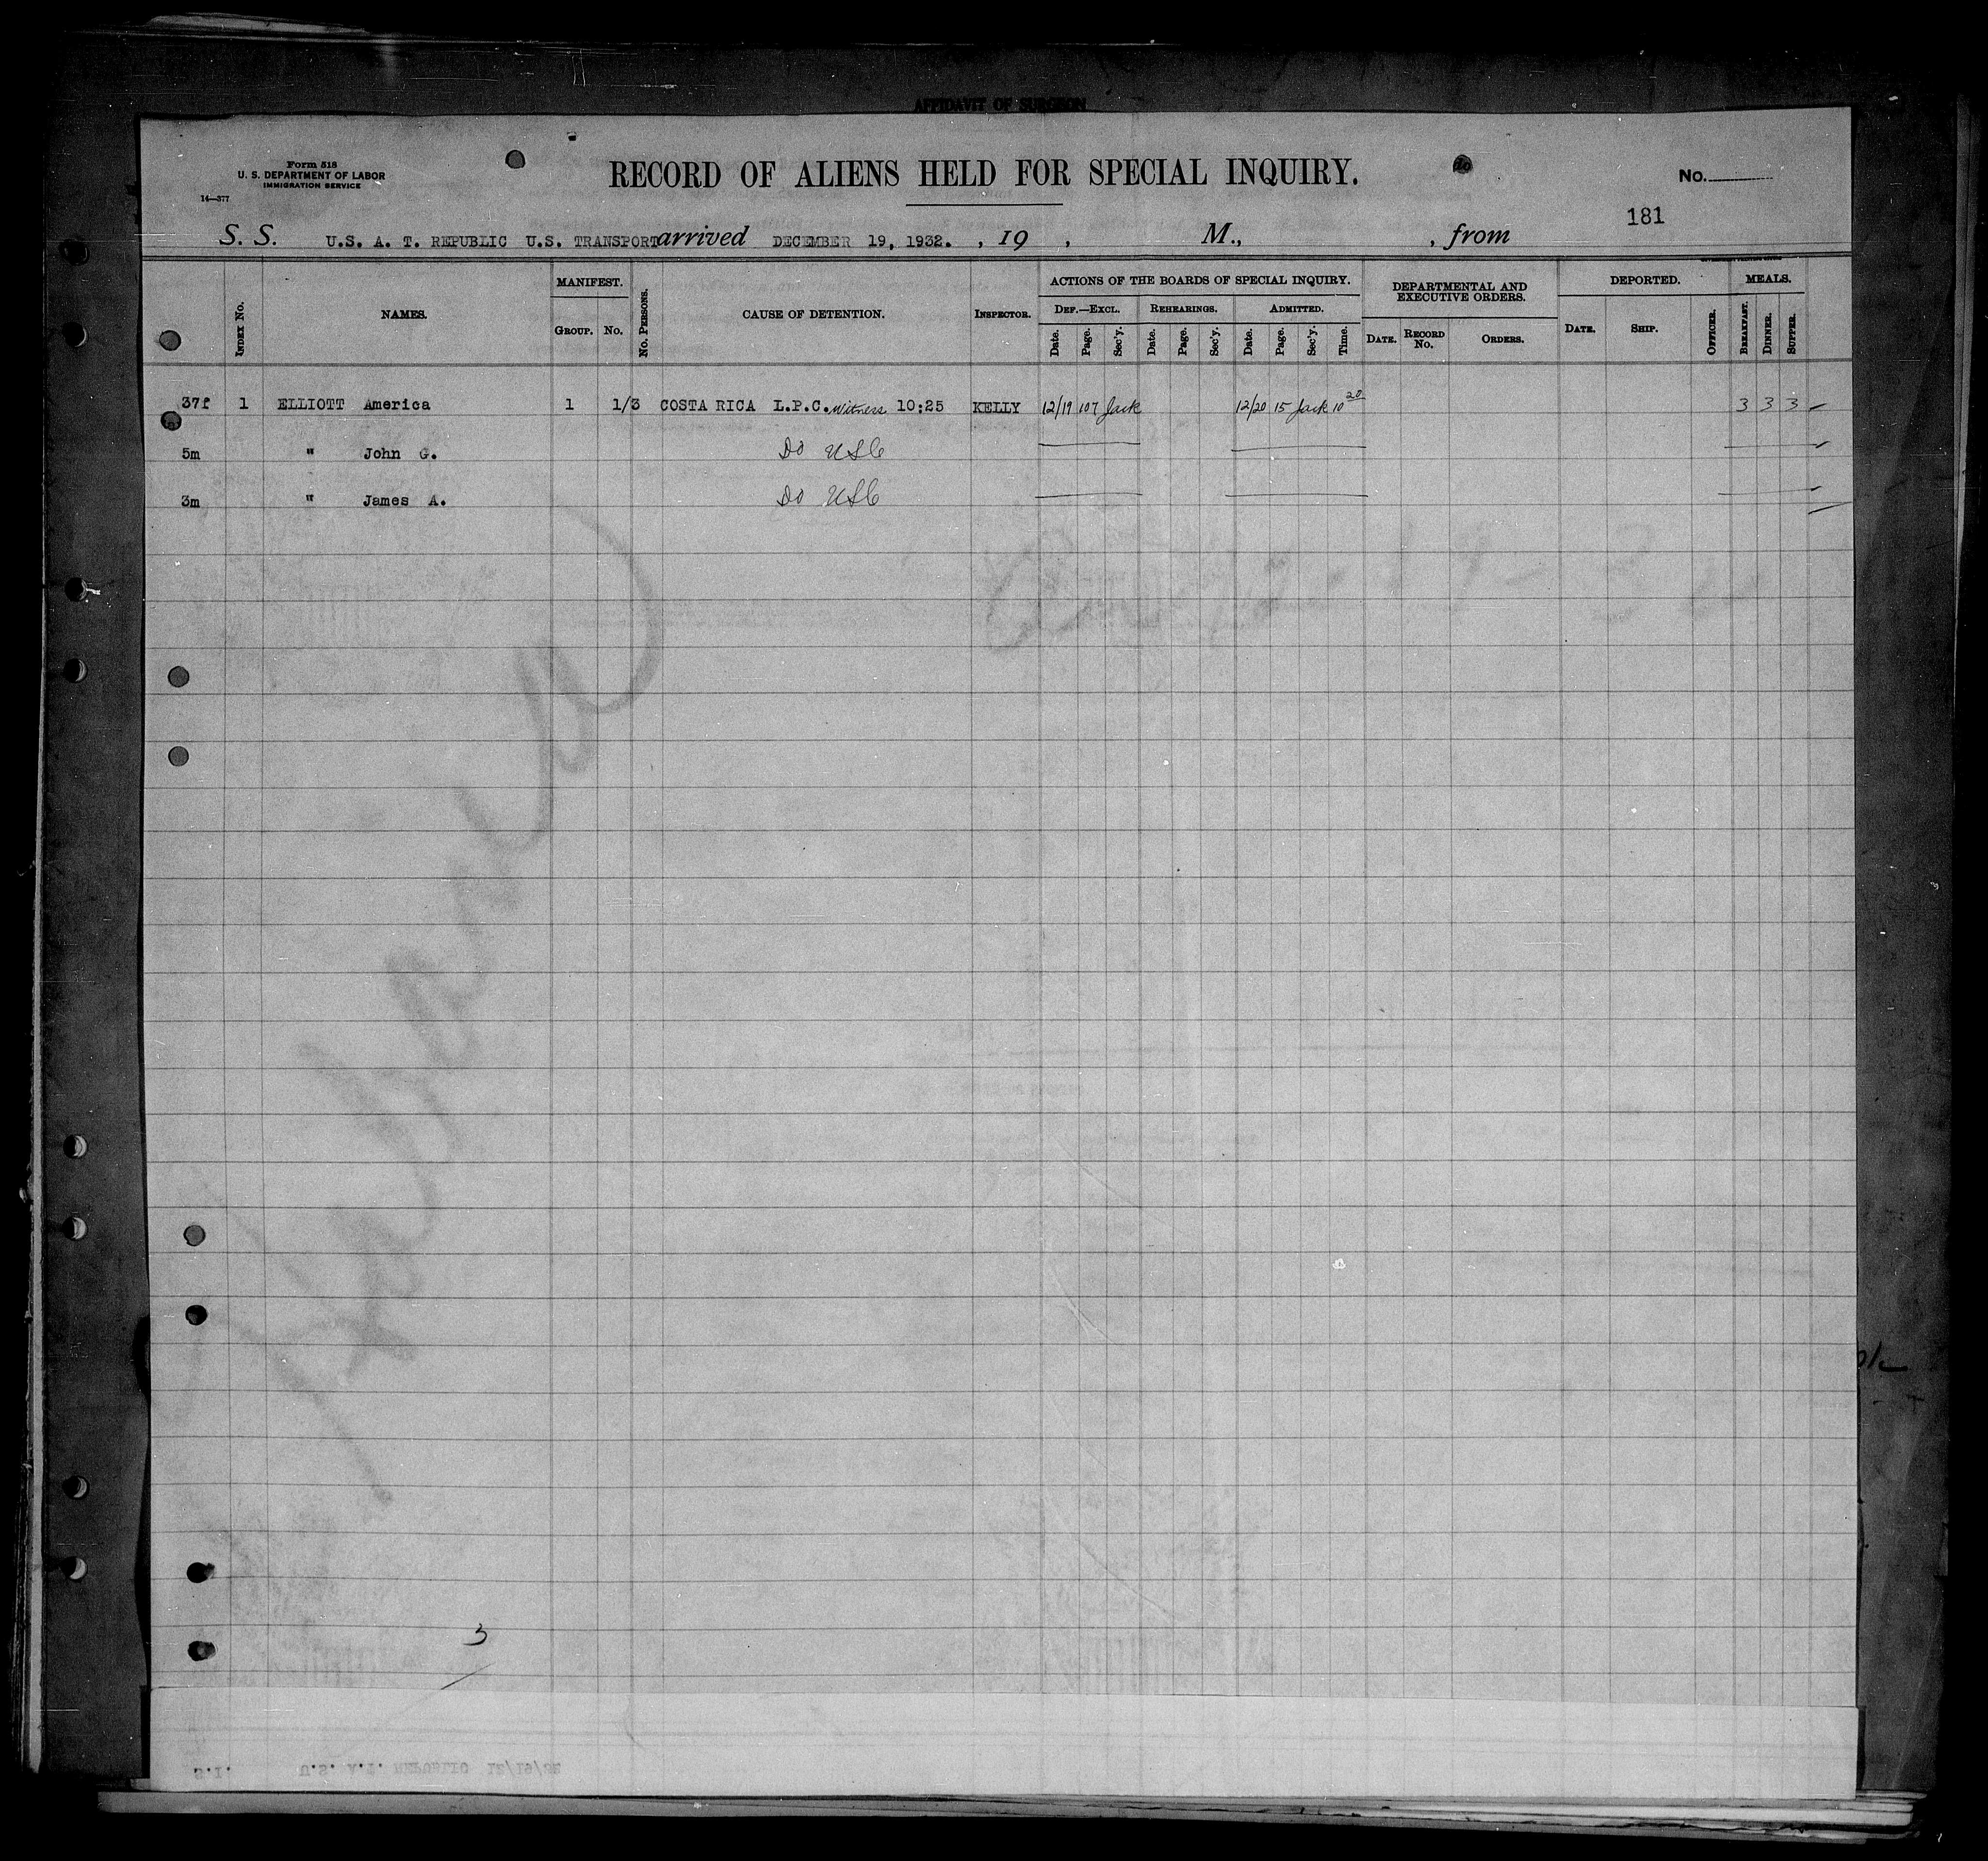 AFFIDAVIT OF SURGEON
Form 518
U. S. DEPARTMENT OF LABOR
IMMIGRATION SERVICE
14—377
RECORD OF ALIENS HELD FOR SPECIAL INQUIRY.
No.
181
S. S. U.S. A. T. REPUBLIC U.S. TRANSPORT arrived DECEMBER 19, 1932. , 19 , M., , from
INDEX No. NAMES. MANIFEST. GROUP. No. No. PERSONS. CAUSE OF DETENTION. INSPECTOR. ACTIONS OF THE BOARDS OF SPECIAL INQUIRY. DEF.—EXCL. Date. Page. Sec'y. REHEARINGS. Date. Page. Sec'y. ADMITTED. Date. Page. Sec'y. Time. DEPARTMENTAL AND EXECUTIVE ORDERS. DATE. RECORD No. ORDERS. DEPORTED. DATE. SHIP. OFFICER. MEALS. BREAKFAST. DINNER. SUPPER.
37f 1 ELLIOTT America 1 1/3 COSTA RICA L.P.C. Witness 10:25 KELLY 12/19 107 Jack 12/20 15 Jack 10 20 3 3 3
5m " John G. Do USC
3m " James A. Do USC
3